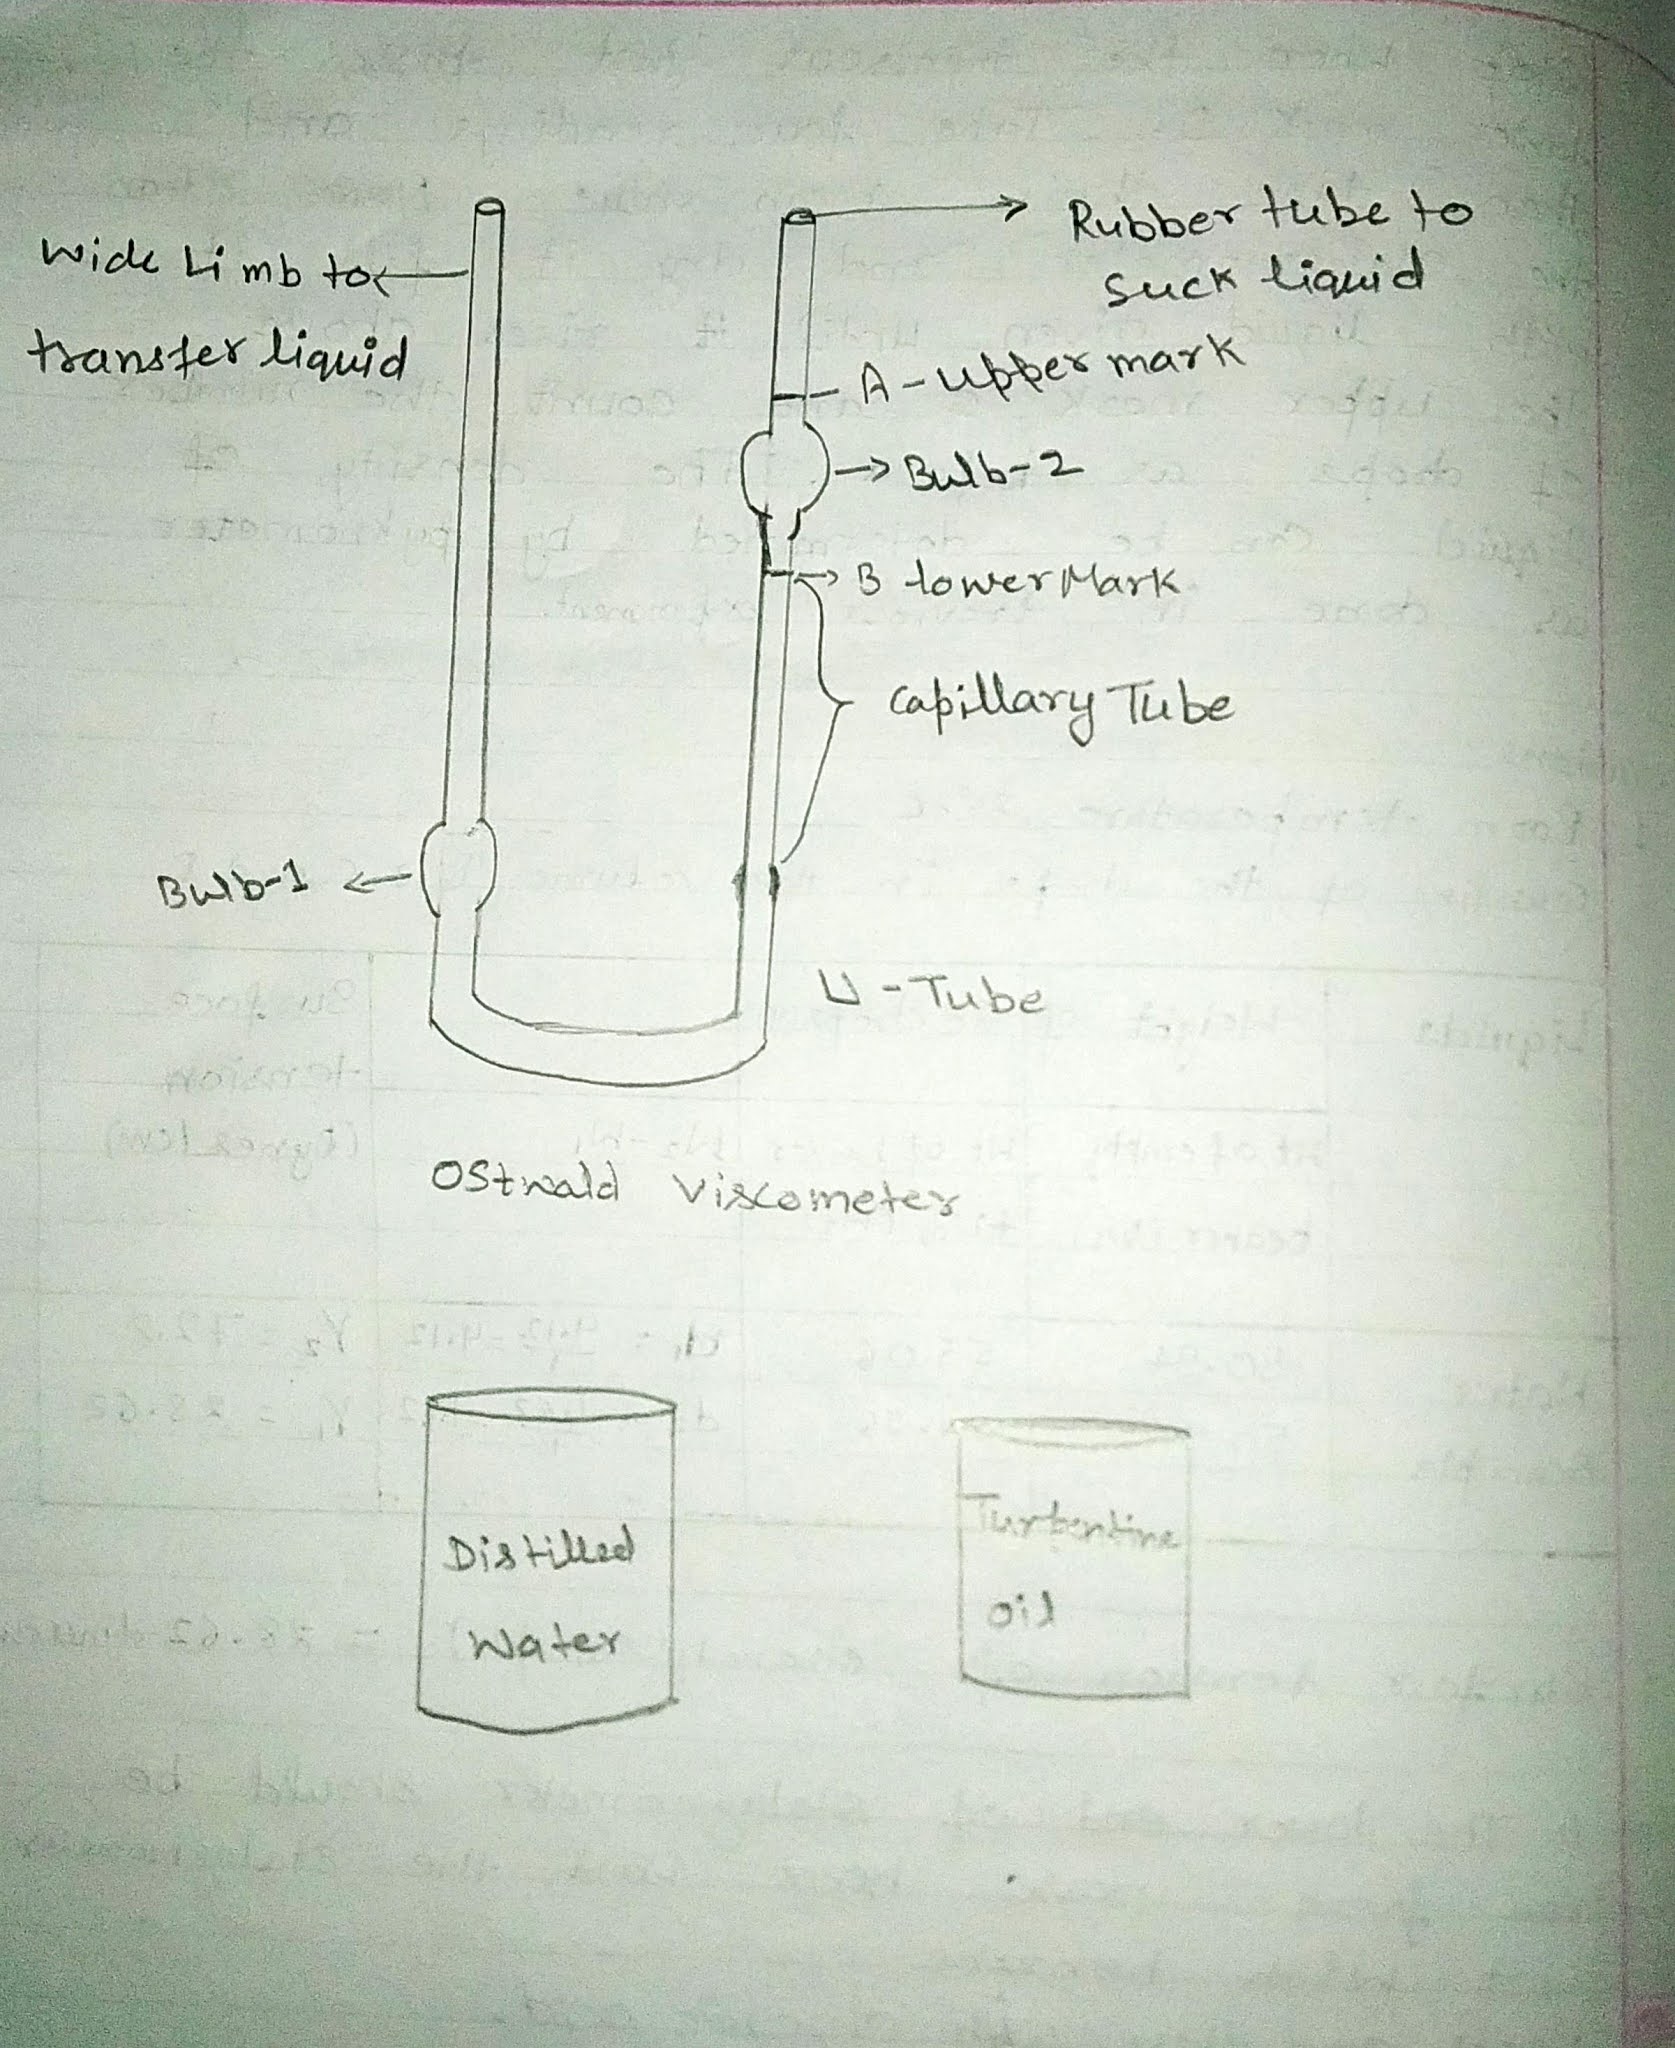 Rubber tube to
suck liquid
Wide Limb to
transfer liquid
A - Upper mark
Bulb-2
B lower Mark
Capillary Tube
Bulb-1
U - Tube
Ostwald Viscometer
Distilled
Water
Turbentine
oil